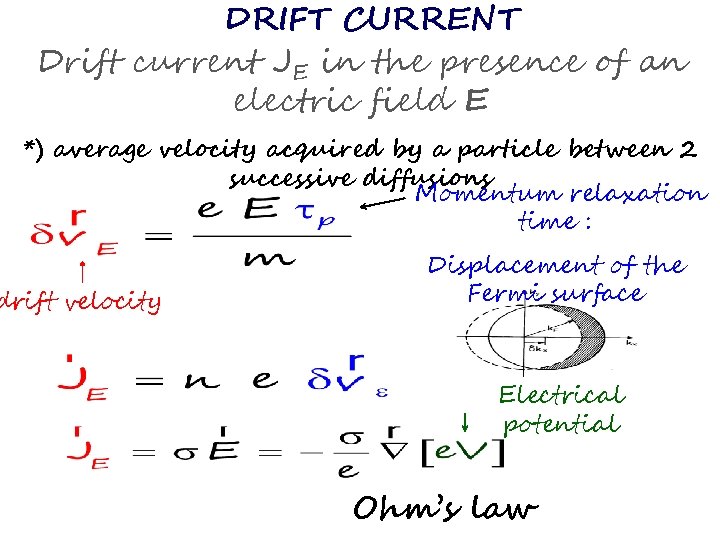 DRIFT CURRENT
Drift current J_E in the presence of an
electric field E
*) average velocity acquired by a particle between 2
successive diffusions
Momentum relaxation
time :
δv^r_E = e E τ_p / m
drift velocity
Displacement of the
Fermi surface
J_E = n e δv^r_ε
Electrical
potential
J_E = σ E^r = - σ/e ∇^r [eV]
Ohm's law